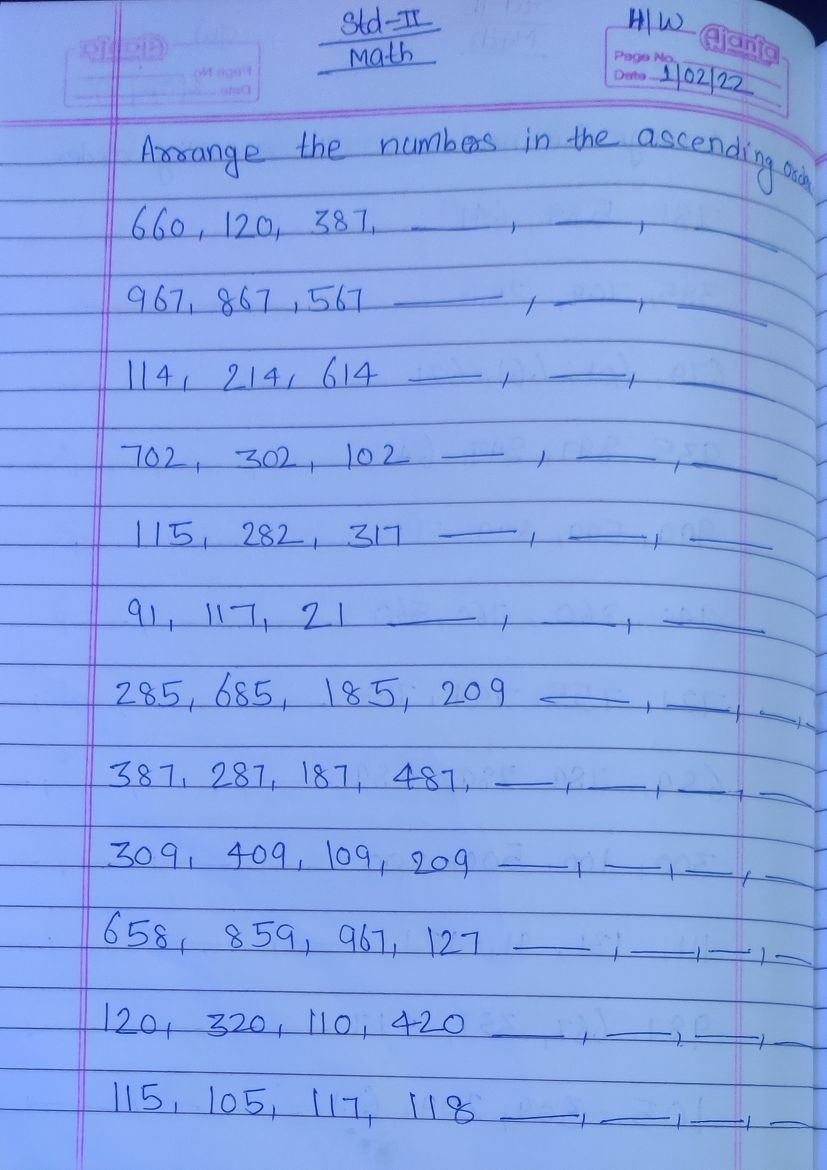 Std-II
Math
H/W
Ajanta
Page No.
Date 1/02/22
Arrange the numbers in the ascending order
660, 120, 387, ___, ___, ___
967, 867, 567 ___, ___, ___
114, 214, 614 ___, ___, ___
702, 302, 102 ___, ___, ___
115, 282, 317 ___, ___, ___
91, 117, 21 ___, ___, ___
285, 685, 185, 209 ___, ___, ___,
387, 287, 187, 487, ___, ___, ___, ___
309, 409, 109, 209 ___, ___, ___, ___
658, 859, 967, 127 ___, ___, ___, ___
120, 320, 110, 420 ___, ___, ___, ___
115, 105, 117, 118 ___, ___, ___, ___